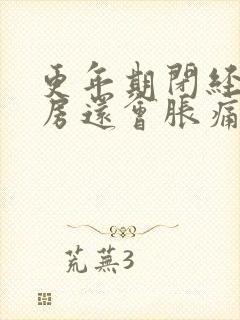 更年期閉経
房還會脹痛
荒蕪3